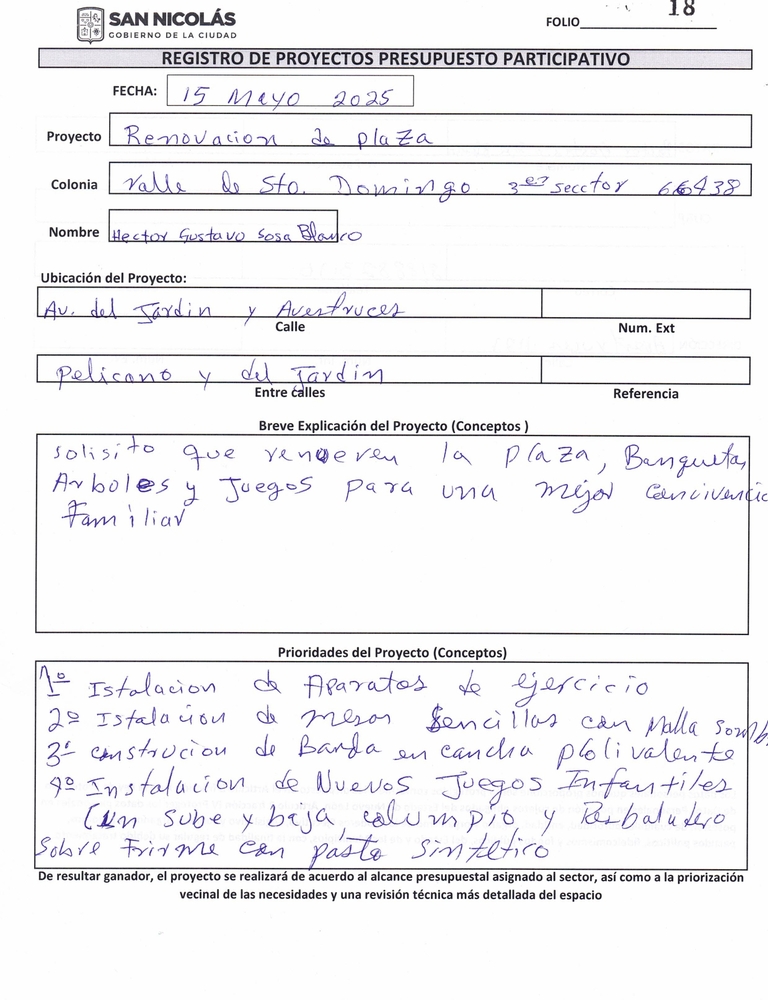 SAN NICOLÁS
GOBIERNO DE LA CIUDAD
FOLIO 18
REGISTRO DE PROYECTOS PRESUPUESTO PARTICIPATIVO
FECHA: 15 Mayo 2025
Proyecto Renovacion de plaza
Colonia Valle de Sto. Domingo 3er secctor 66438
Nombre Hector Gustavo Sosa Blanco
Ubicación del Proyecto:
Av. del Jardin y Avestruces
Calle Num. Ext
Pelicano y del Jardin
Entre calles Referencia
Breve Explicación del Proyecto (Conceptos )
solisito que renueven la plaza, Banquetas
Arboles y Juegos para una mejor
Familiar
Prioridades del Proyecto (Conceptos)
1º Istalacion de Aparatos de ejercicio
2º Istalacion de mesas sencillas con Malla somb
3º construcion de Barda en cancha polivalente
4º Instalacion de Nuevos Juegos Infantiles
(un sube y baja, columpio y Resbaladero
Sobre Firme con pasto sintetico
De resultar ganador, el proyecto se realizará de acuerdo al alcance presupuestal asignado al sector, así como a la priorización
vecinal de las necesidades y una revisión técnica más detallada del espacio